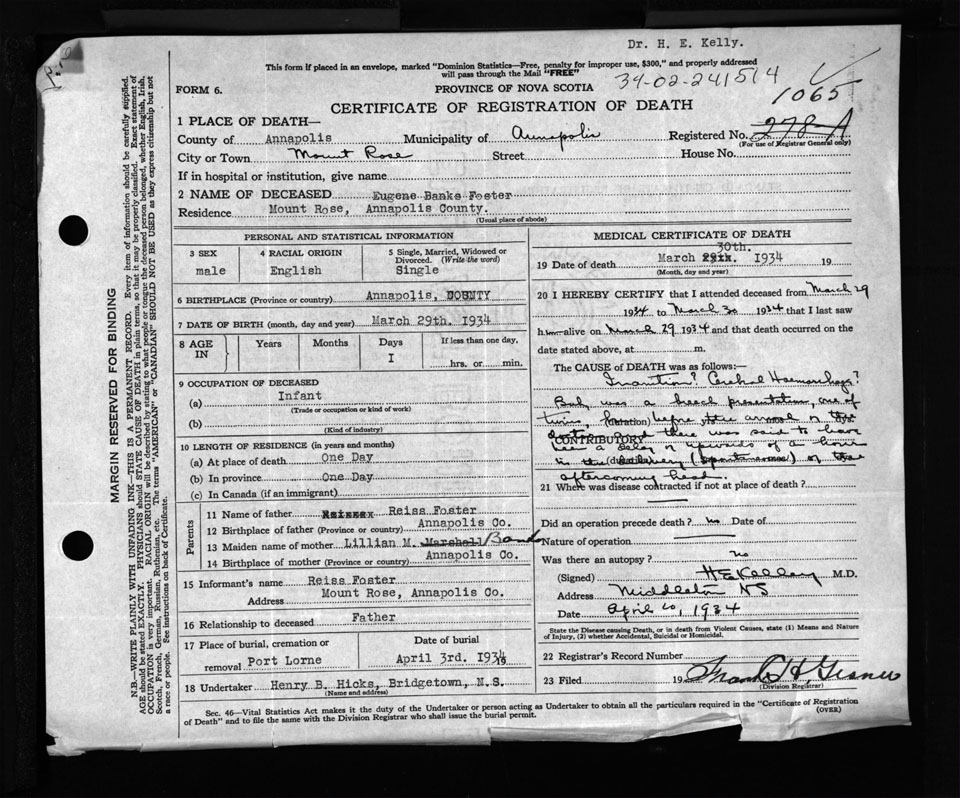 Dr. H. E. Kelly.
This form if placed in an envelope, marked "Dominion Statistics—Free, penalty for improper use, $300," and properly addressed
will pass through the Mail "FREE"
34-02-241514
1065
FORM 6.
PROVINCE OF NOVA SCOTIA
CERTIFICATE OF REGISTRATION OF DEATH
1 PLACE OF DEATH—
County of Annapolis Municipality of Annapolis Registered No. 278-A
(For use of Registrar General only)
City or Town Mount Rose Street House No.
If in hospital or institution, give name
2 NAME OF DECEASED Eugene Banks Foster
Residence Mount Rose, Annapolis County.
(Usual place of abode)
PERSONAL AND STATISTICAL INFORMATION
3 SEX 4 RACIAL ORIGIN 5 Single, Married, Widowed or
Divorced. (Write the word)
male English Single
6 BIRTHPLACE (Province or country) Annapolis, COUNTY
7 DATE OF BIRTH (month, day and year) March 29th. 1934
8 AGE
IN
Years Months Days If less than one day,
I hrs. or min.
9 OCCUPATION OF DECEASED
(a) Infant
(Trade or occupation or kind of work)
(b)
(Kind of industry)
10 LENGTH OF RESIDENCE (in years and months)
(a) At place of death One Day
(b) In province One Day
(c) In Canada (if an immigrant)
Parents
11 Name of father Reiss Foster
12 Birthplace of father (Province or country) Annapolis Co.
13 Maiden name of mother Lillian M. Marshall Banks
14 Birthplace of mother (Province or country) Annapolis Co.
15 Informant's name Reiss Foster
Address Mount Rose, Annapolis Co.
16 Relationship to deceased Father
17 Place of burial, cremation or
removal Port Lorne
Date of burial
April 3rd. 1934 19
18 Undertaker Henry B. Hicks, Bridgetown, N.S.
(Name and address)
MEDICAL CERTIFICATE OF DEATH
30th.
19 Date of death March 29th. 1934 19
(Month, day and year)
20 I HEREBY CERTIFY that I attended deceased from March 29
1934 to March 30 1934 that I last saw
him alive on March 29 1934 and that death occurred on the
date stated above, at m.
The CAUSE of DEATH was as follows:—
Inanition? Cerebral Haemorrhage?
Baby was a breech presentation, one of
twins, (duration) before the arrival of the
CONTRIBUTORY and there was said to have
been a delay of upwards of an hour
in the (duration) delivery (spontaneous) of the
aftercoming head.
21 Where was disease contracted if not at place of death?
Did an operation precede death? no Date of
Nature of operation
Was there an autopsy? no
(Signed) H E Kelley M.D.
Address Middleton NS
Date April 10, 1934
State the Disease causing Death, or in death from Violent Causes, state (1) Means and Nature
of Injury, (2) whether Accidental, Suicidal or Homicidal.
22 Registrar's Record Number
23 Filed 19 Frank H. Gesner
(Division Registrar)
Sec. 46—Vital Statistics Act makes it the duty of the Undertaker or person acting as Undertaker to obtain all the particulars required in the "Certificate of Registration
of Death" and to file the same with the Division Registrar who shall issue the burial permit.
(OVER)
MARGIN RESERVED FOR BINDING
N.B.—WRITE PLAINLY WITH UNFADING INK—THIS IS A PERMANENT RECORD. Every item of information should be carefully supplied.
AGE should be stated EXACTLY. PHYSICIANS should STATE CAUSE OF DEATH in plain terms, so that it may be properly classified. Exact statement of
OCCUPATION is very important. RACIAL ORIGIN will be described by stating to what people or tongue the deceased person belonged, whether English, Irish,
Scotch, French, German, Russian, Ruthenian, etc. The terms "AMERICAN" or "CANADIAN" SHOULD NOT BE USED as they express citizenship but not
a race or people. See instructions on back of Certificate.